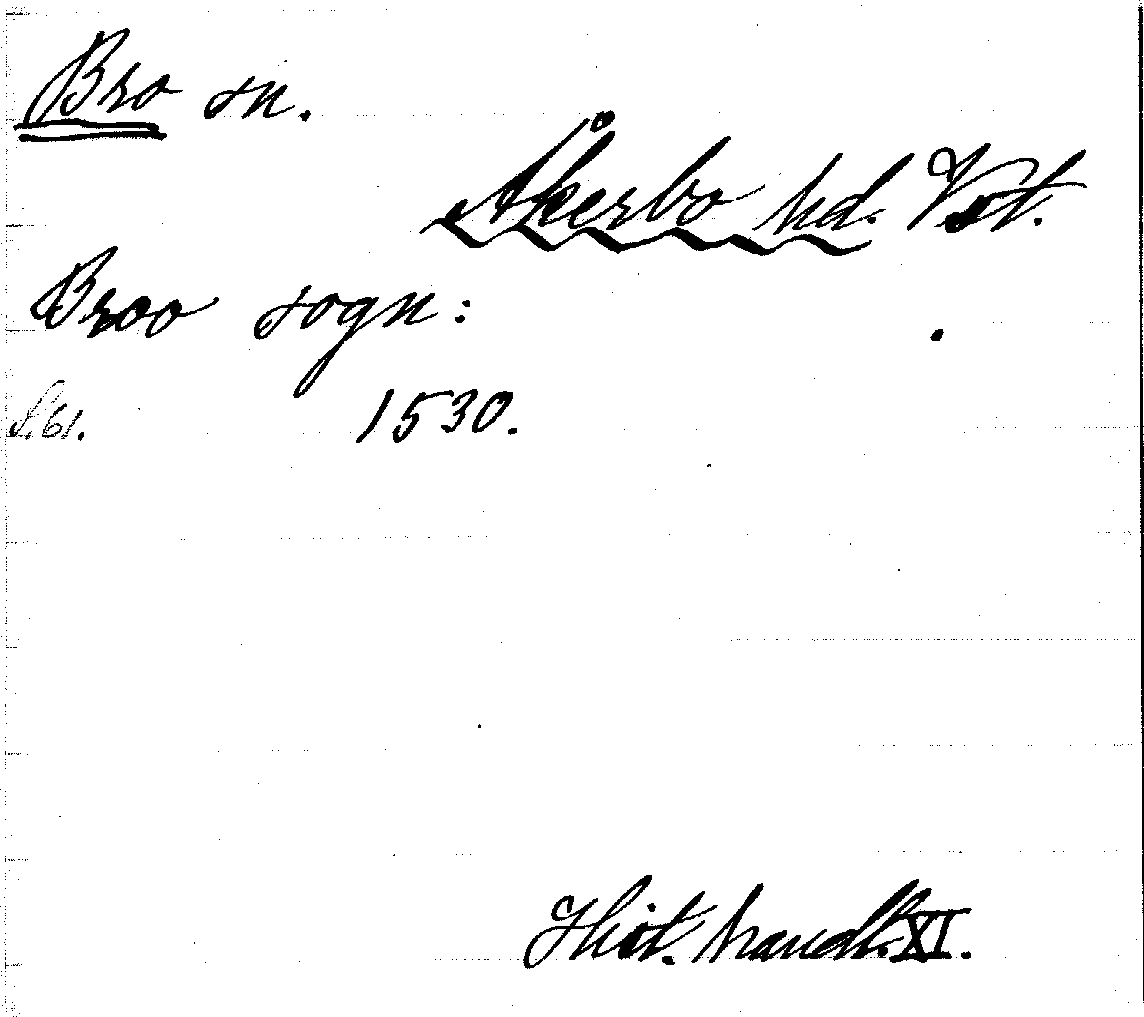 Bro sn.
Åkerbo hd. Vst.
Broo sogn:
S. 61. 1530.
Hist. handl. XI.